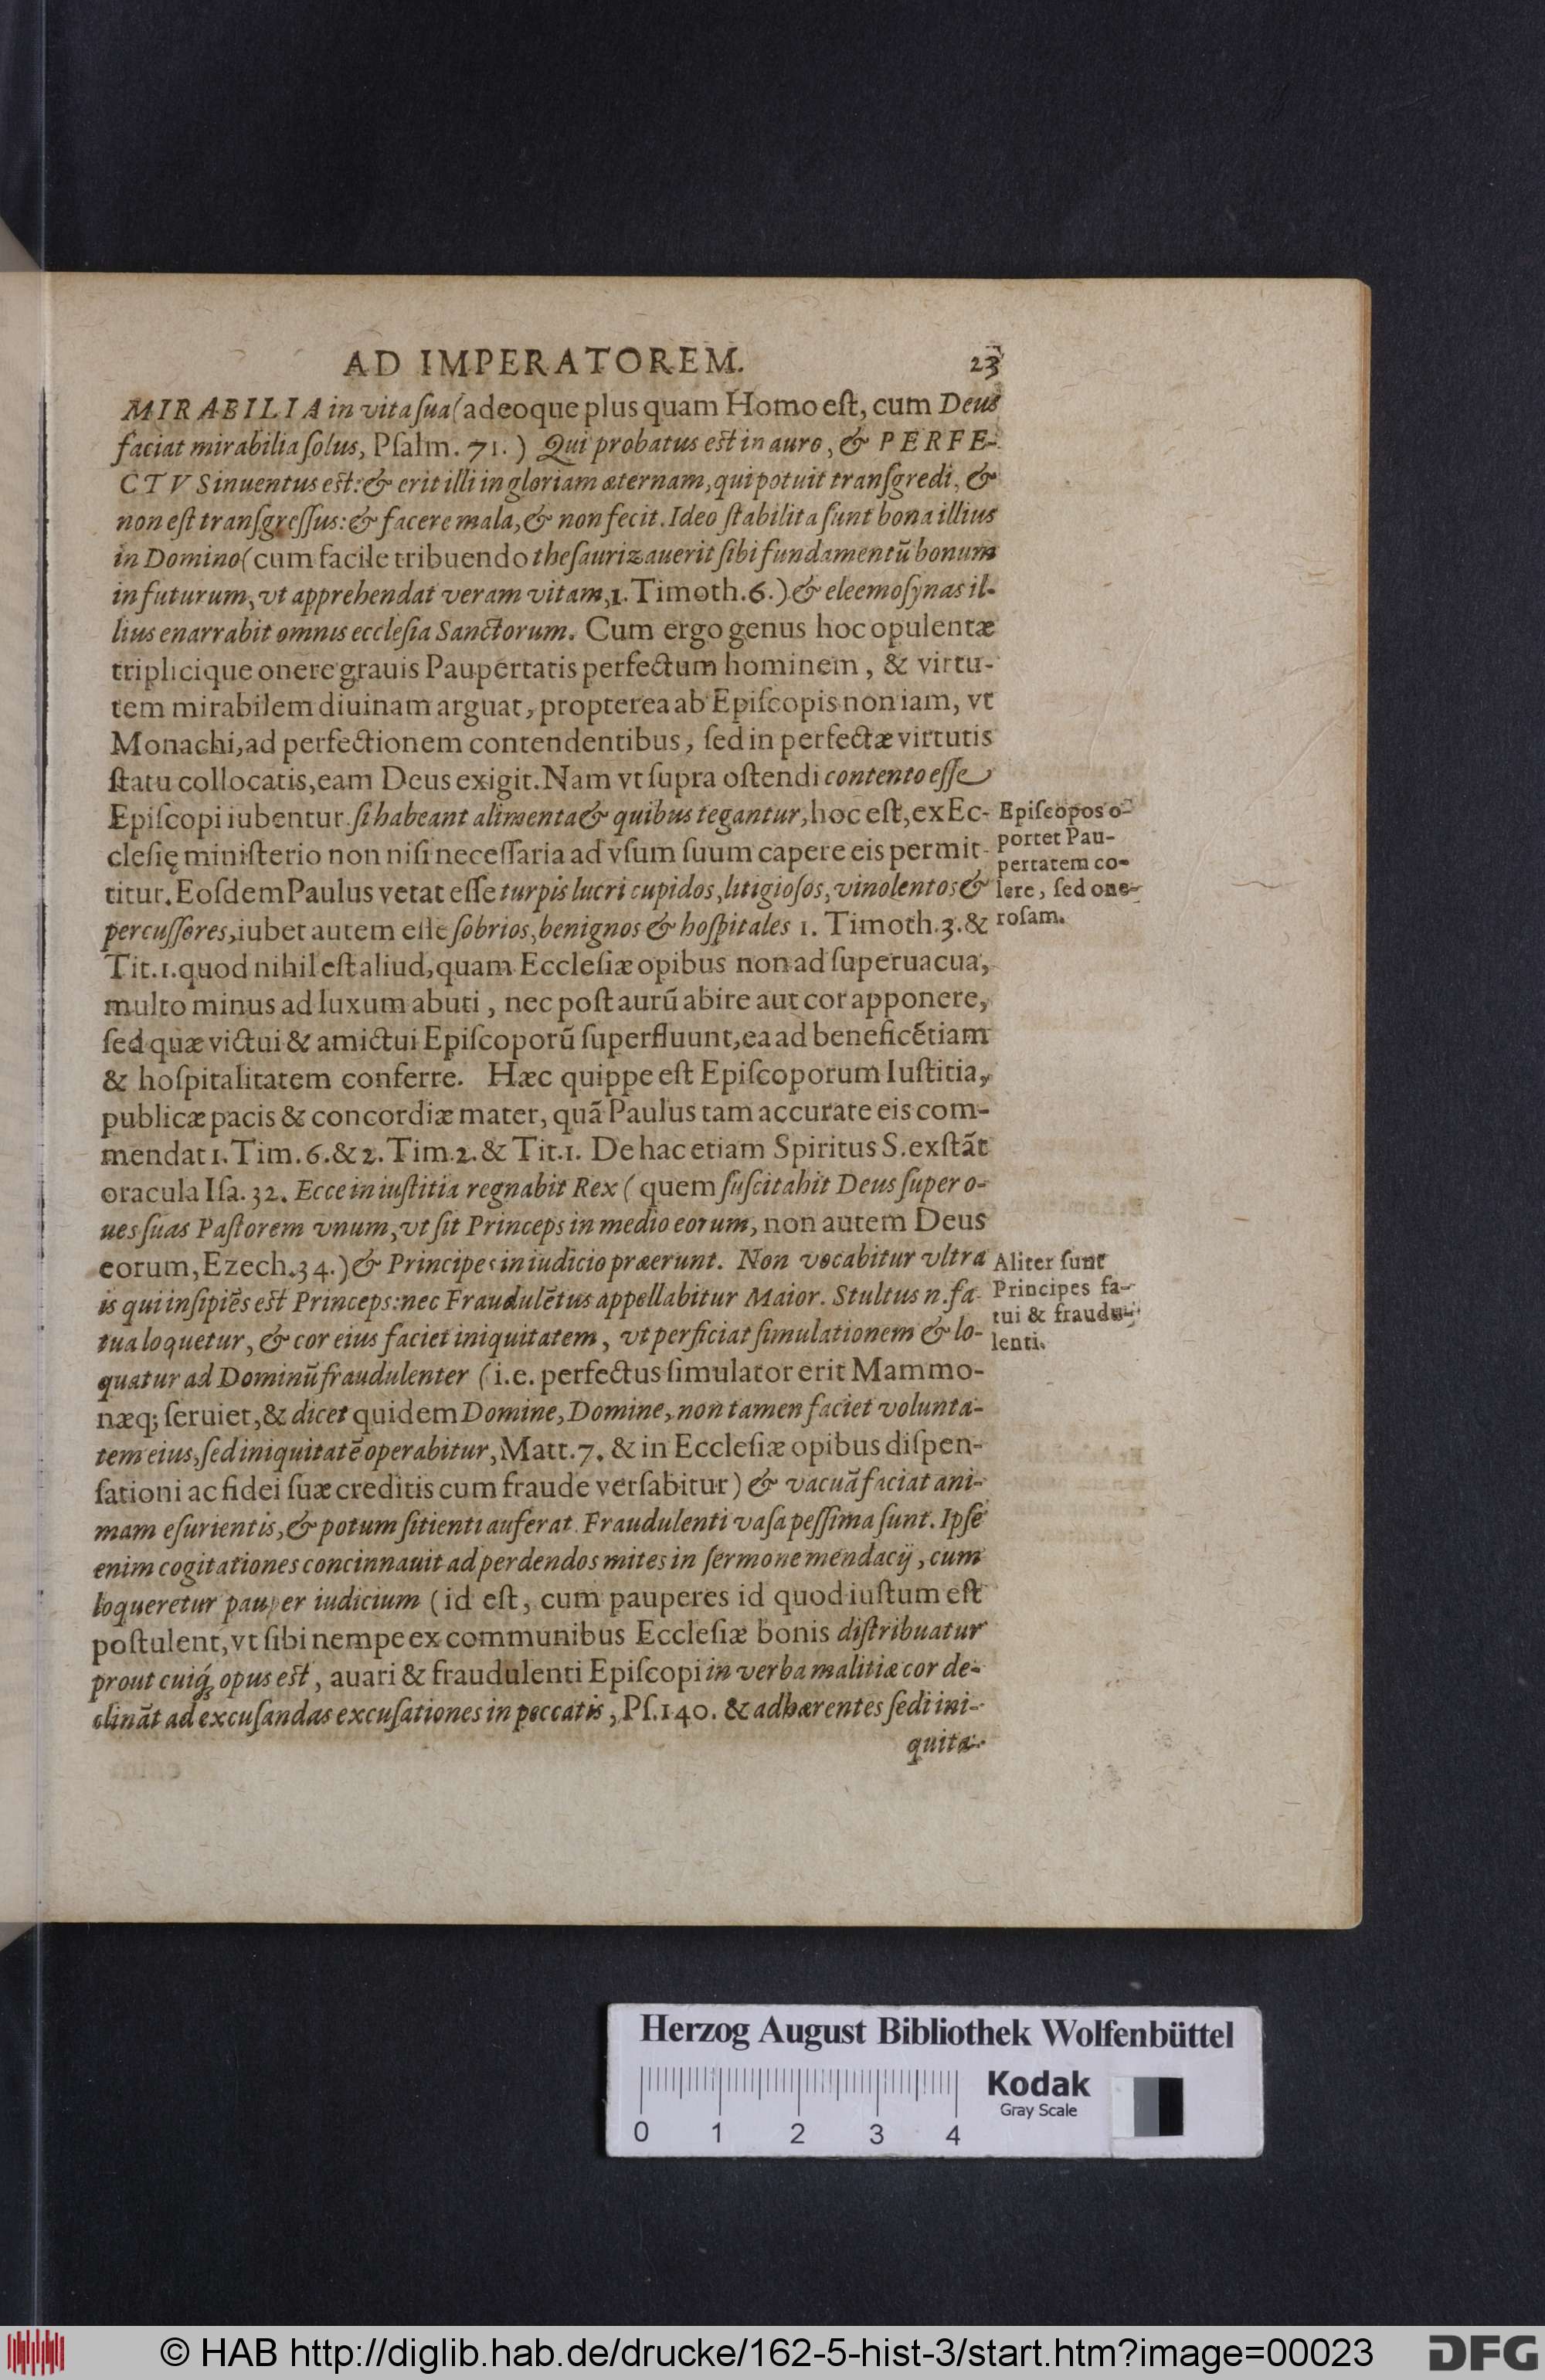 AD IMPERATOREM. 23
MIRABILIA in vita ſua (adeoque plus quam Homo eſt, cum Deus
faciat mirabilia ſolus, Pſalm. 71.) Qui probatus est in auro, & PERFE-
CTVS inuentus est: & erit illi in gloriam æternam, qui potuit tranſgredi, &
non eſt tranſgreſſus: & facere mala, & non fecit. Ideo ſtabilita ſunt bona illius
in Domino (cum facile tribuendo theſaurizauerit ſibi fundamentũ bonum
in futurum, vt apprehendat veram vitam, 1. Timoth. 6.) & eleemoſynas il-
lius enarrabit omnis eccleſia Sanctorum. Cum ergo genus hoc opulentæ
triplicique onere grauis Paupertatis perfectum hominem, & virtu-
tem mirabilem diuinam arguat, propterea ab Epiſcopis non iam, vt
Monachi, ad perfectionem contendentibus, ſed in perfectæ virtutis
ſtatu collocatis, eam Deus exigit. Nam vt ſupra oſtendi contento eſſe
Epiſcopi iubentur ſi habeant alimenta & quibus tegantur, hoc eſt, ex Ec-
cleſię miniſterio non niſi neceſſaria ad vſum ſuum capere eis permit-
titur. Eoſdem Paulus vetat eſſe turpis lucri cupidos, litigioſos, vinolentos &
percuſſores, iubet autem eſſe ſobrios, benignos & hoſpitales 1. Timoth. 3. &
Epiſcopos o-
portet Pau-
pertatem co-
lere, ſed one-
roſam.
Tit. 1. quod nihil eſt aliud, quam Eccleſiæ opibus non ad ſuperuacua,
multo minus ad luxum abuti, nec poſt aurũ abire aut cor apponere,
ſed quæ victui & amictui Epiſcoporũ ſuperfluunt, ea ad beneficẽtiam
& hoſpitalitatem conferre. Hæc quippe eſt Epiſcoporum Iuſtitia,
publicæ pacis & concordiæ mater, quã Paulus tam accurate eis com-
mendat 1. Tim. 6. & 2. Tim. 2. & Tit. 1. De hac etiam Spiritus S. exſtãt
oracula Iſa. 32. Ecce in iuſtitia regnabit Rex (quem ſuſcitabit Deus ſuper o-
ues ſuas Paſtorem vnum, vt ſit Princeps in medio eorum, non autem Deus
eorum, Ezech. 34.) & Principes in iudicio præerunt. Non vocabitur vltra
is qui inſipiẽs est Princeps: nec Fraudulẽtus appellabitur Maior. Stultus n. fa-
tua loquetur, & cor eius faciet iniquitatem, vt perficiat ſimulationem & lo-
Aliter ſunt
Principes fa-
tui & fraudu-
lenti.
quatur ad Dominũ fraudulenter (i.e. perfectus ſimulator erit Mammo-
næq; ſeruiet, & dicet quidem Domine, Domine, non tamen faciet volunta-
tem eius, ſed iniquitatẽ operabitur, Matt. 7. & in Eccleſiæ opibus diſpen-
ſationi ac fidei ſuæ creditis cum fraude verſabitur) & vacuã faciat ani-
mam eſurientis, & potum ſitienti auferat. Fraudulenti vaſa peſſima ſunt. Ipſe
enim cogitationes concinnauit ad perdendos mites in ſermone mendacij, cum
loqueretur pauper iudicium (id eſt, cum pauperes id quod iuſtum eſt
poſtulent, vt ſibi nempe ex communibus Eccleſiæ bonis diſtribuatur
prout cuiq́; opus est, auari & fraudulenti Epiſcopi in verba malitiæ cor de-
clinãt ad excuſandas excuſationes in peccatis, Pſ. 140. & adhærentes ſedi ini-
quita-
Herzog August Bibliothek Wolfenbüttel
Kodak
Gray Scale
0 1 2 3 4
© HAB http://diglib.hab.de/drucke/162-5-hist-3/start.htm?image=00023
DFG